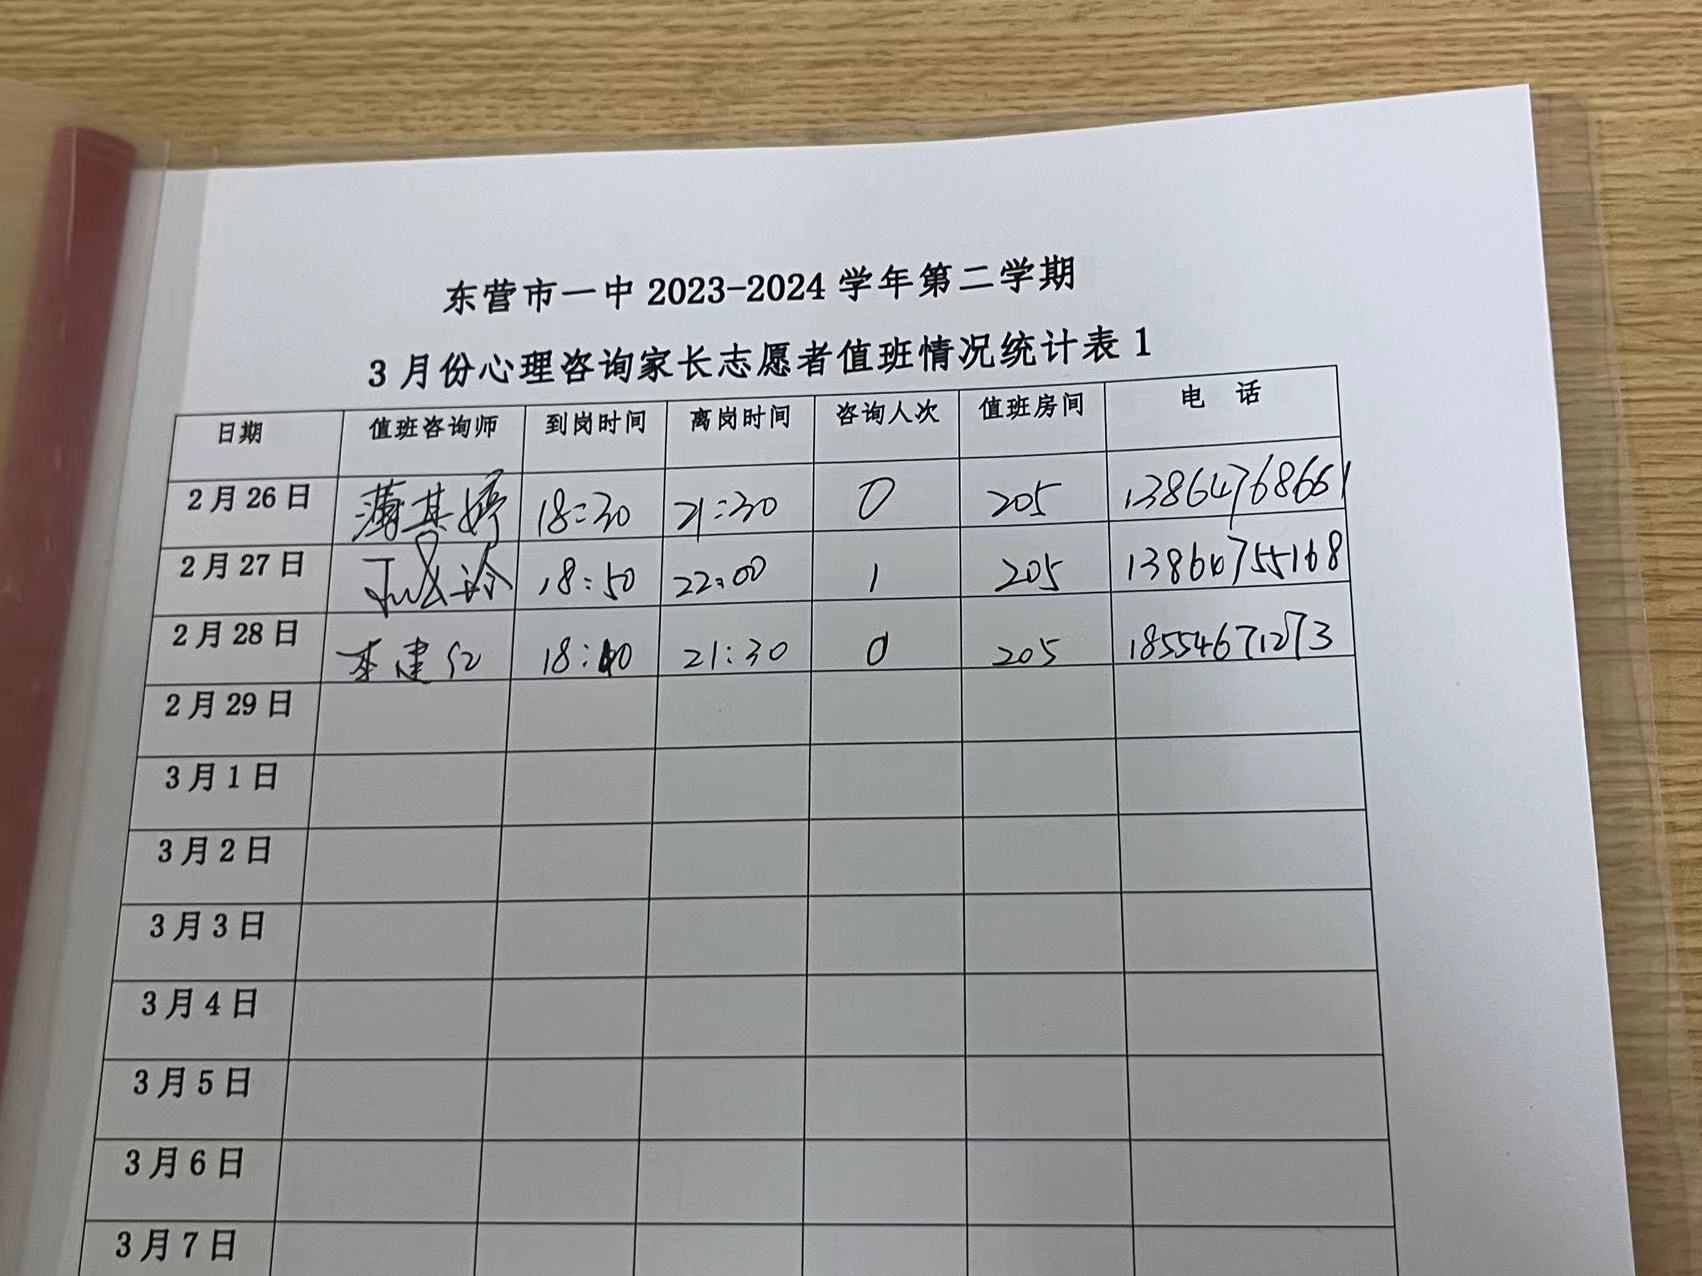 东营市一中 2023-2024 学年第二学期
3 月份心理咨询家长志愿者值班情况统计表 1
日期 值班咨询师 到岗时间 离岗时间 咨询人次 值班房间 电 话
2 月 26 日 薄其婷 18:30 21:30 0 205 13864768661
2 月 27 日 18:50 22:00 1 205 13864755168
2 月 28 日 李建红 21:30 0 205 18554671273
2 月 29 日
3 月 1 日
3 月 2 日
3 月 3 日
3 月 4 日
3 月 5 日
3 月 6 日
3 月 7 日